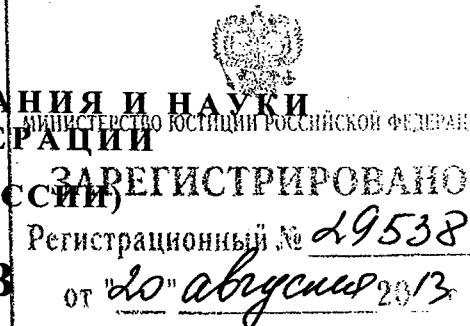 АНИЯ И НАУКИ
МИНИСТЕРСТВО ЮСТИЦИИ РОССИЙСКОЙ ФЕДЕРАЦ
ЕРАЦИИ
ЗАРЕГИСТРИРОВАНО
ССИИ)
Регистрационный № 29538
от "20" августа 2013